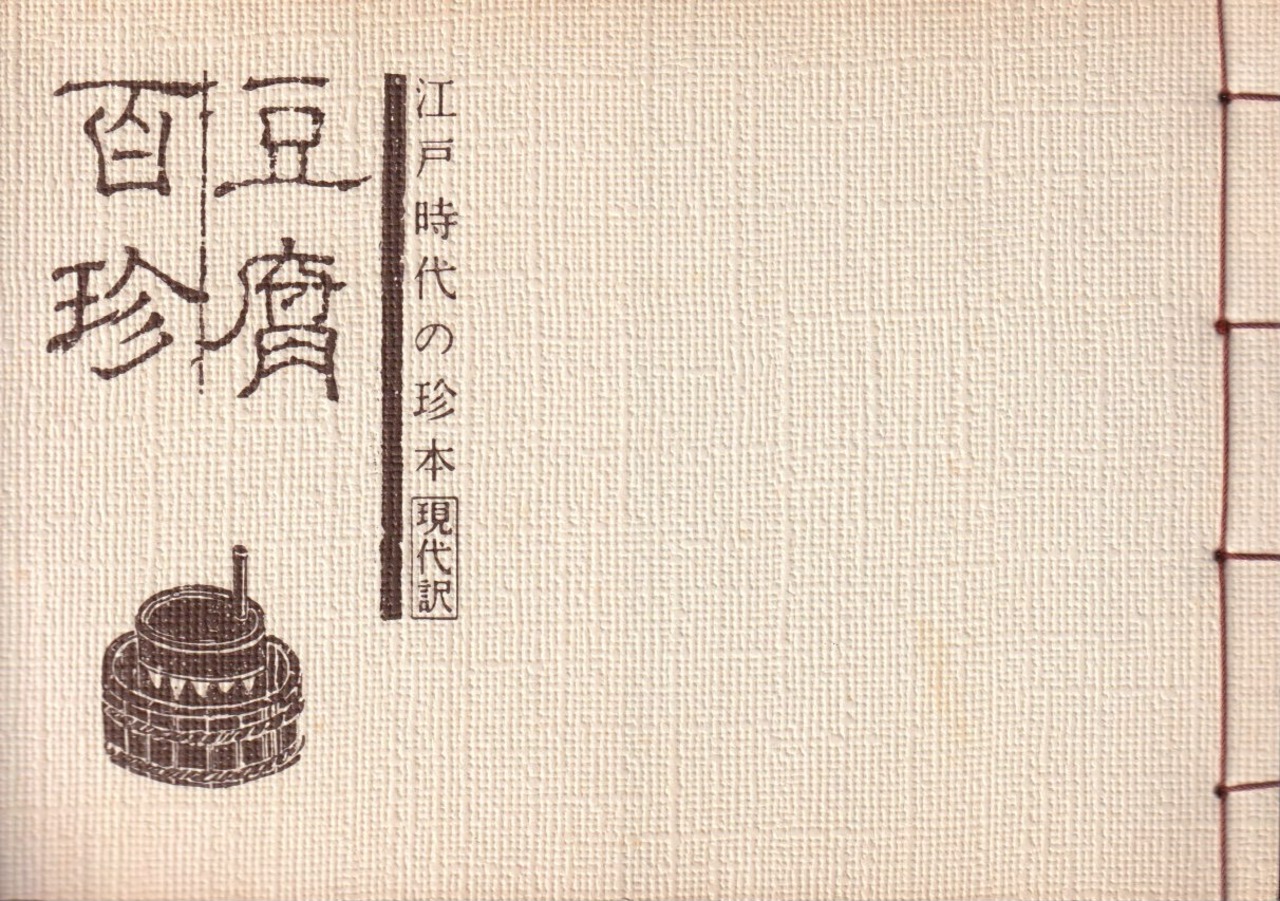 江戸時代の珍本 現代訳
豆腐
百珍